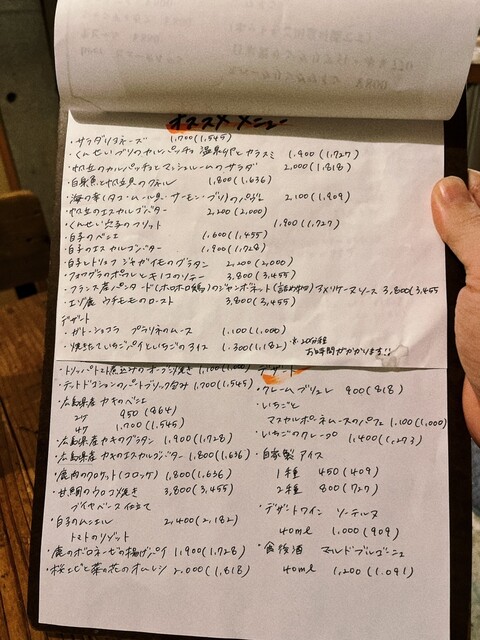 オススメメニュー
・サラダリヨネーズ 1,700(1,545)
・くんせいブリのカルパッチョ 温泉卵とカラスミ 1,900(1,727)
・帆立のカルパッチョとマッシュルームのサラダ 2,000(1,818)
・白身魚と帆立貝のクネル 1,800(1,636)
・海の幸(タコ・ムール貝・サーモン・ブリ)のパイ包 2,100(1,909)
・帆立のエスカルゴバター 2,200(2,000)
・くんせい穴子のフリット 1,900(1,727)
・白子のベニエ 1,600(1,455)
・白子のエスカルゴバター 1,900(1,728)
・白子とトリュフ ジャガイモのグラタン 2,200(2,000)
・フォアグラのポワレとキノコのソテー 3,800(3,455)
・フランス産パンタード(ホロホロ鶏)のジャンボネット(詰め物) アメリケーヌソース 3,800(3,455
・エゾ鹿 ウチモモのロースト 3,800(3,455)
デザート
・ガトーショコラ プラリネのムース 1,100(1,000)
・焼きたていちごパイといちごのアイス 1,300(1,182) ※20分程お時間がかかります!!
・トリッパトマト煮込みのオーブン焼き 1,100(1,000)
・テットドコションのパートブリック包み 1,700(1,545)
・広島県産 カキのベニエ
2ケ 950(864)
4ケ 1,700(1,545)
・広島県産カキのグラタン 1,900(1,728)
・広島県産カキのエスカルゴバター 1,800(1,636)
・鹿肉のクロケット(コロッケ) 1,800(1,636)
・甘鯛のウロコ焼き 3,800(3,455)
ブイヤベース仕立て
・白子のムニエル 2,400(2,182)
トマトのリゾット
・鹿のボロネーゼの揚げパイ 1,900(1,728)
・桜エビと菜の花のオムレツ 2,000(1,818)
デザート
・クレームブリュレ 900(818)
・いちごと
マスカルポーネムースのパフェ 1,100(1,000)
・いちごのクレープ 1,400(1,273)
・自家製アイス
1種 450(409)
2種 800(727)
・デザートワイン ソーテルヌ
40ml 1,000(909)
・食後酒 マールドブルゴーニュ
40ml 1,200(1,091)